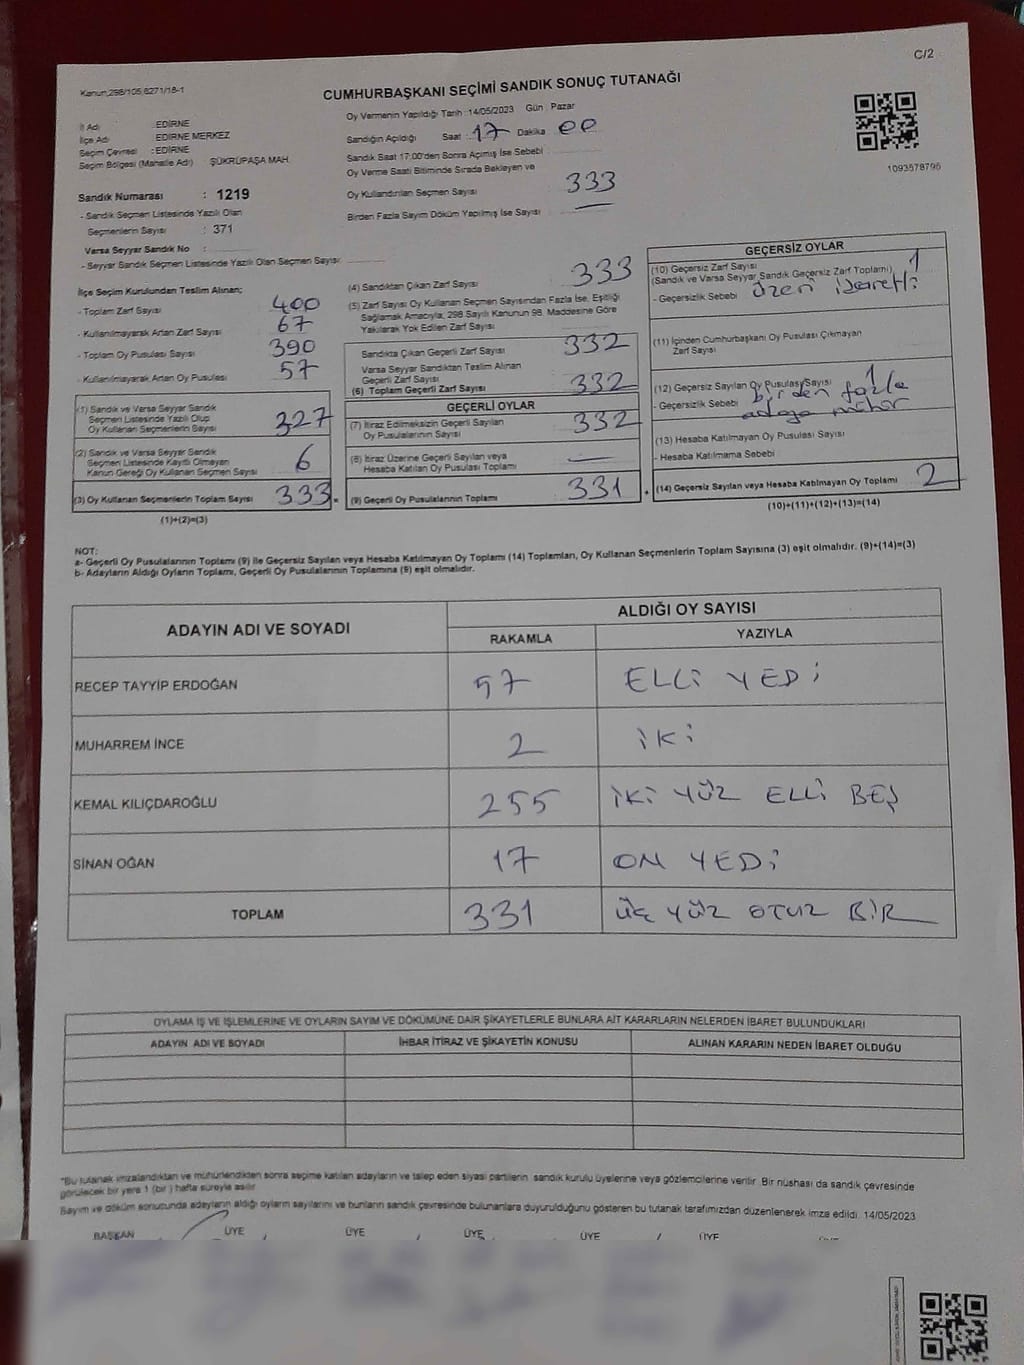 C/2
Kanun,298/105,6271/18-1
CUMHURBAŞKANI SEÇİMİ SANDIK SONUÇ TUTANAĞI
İl Adı : EDİRNE
İlçe Adı : EDİRNE MERKEZ
Seçim Çevresi : EDİRNE
Seçim Bölgesi (Mahalle Adı) ŞÜKRÜPAŞA MAH.
Sandık Numarası : 1219
- Sandık Seçmen Listesinde Yazılı Olan
Seçmenlerin Sayısı : 371
Varsa Seyyar Sandık No :
- Seyyar Sandık Seçmen Listesinde Yazılı Olan Seçmen Sayısı:
Oy Vermenin Yapıldığı Tarih :14/05/2023 Gün : Pazar
Sandığın Açıldığı Saat : 17 Dakika 00
Sandık Saat 17:00'den Sonra Açımış İse Sebebi
Oy Verme Saati Bitiminde Sırada Bekleyen ve
Oy Kullandırılan Seçmen Sayısı 333
Birden Fazla Sayım Döküm Yapılmış İse Sayısı —
1093578795
İlçe Seçim Kurulundan Teslim Alınan;
- Toplam Zarf Sayısı 400
- Kullanılmayarak Artan Zarf Sayısı 67
- Toplam Oy Pusulası Sayısı 390
- Kullanılmayarak Artan Oy Pusulası 57
(1) Sandık ve Varsa Seyyar Sandık
Seçmen Listesinde Yazılı Olup
Oy Kullanan Seçmenlerin Sayısı 327
(2) Sandık ve Varsa Seyyar Sandık
Seçmen Listesinde Kayıtlı Olmayan
Kanun Gereği Oy Kullanan Seçmen Sayısı 6
(3) Oy Kullanan Seçmenlerin Toplam Sayısı 333 =
(1)+(2)=(3)
(4) Sandıktan Çıkan Zarf Sayısı 333
(5) Zarf Sayısı Oy Kullanan Seçmen Sayısından Fazla İse, Eşitliği
Sağlamak Amacıyla, 298 Sayılı Kanunun 98. Maddesine Göre
Yakılarak Yok Edilen Zarf Sayısı
Sandıkta Çıkan Geçerli Zarf Sayısı 332
Varsa Seyyar Sandıktan Teslim Alınan
Geçerli Zarf Sayısı
(6) Toplam Geçerli Zarf Sayısı 332
GEÇERLİ OYLAR
(7) İtiraz Edilmeksizin Geçerli Sayılan
Oy Pusulalarının Sayısı 332
(8) İtiraz Üzerine Geçerli Sayılan veya
Hesaba Katılan Oy Pusulası Toplamı —
(9) Geçerli Oy Pusulalarının Toplamı 331 +
GEÇERSİZ OYLAR
(10) Geçersiz Zarf Sayısı 1
(Sandık ve Varsa Seyyar Sandık Geçersiz Zarf Toplamı)
- Geçersizlik Sebebi üzeri işaretli
(11) İçinden Cumhurbaşkanı Oy Pusulası Çıkmayan
Zarf Sayısı
(12) Geçersiz Sayılan Oy Pusulası Sayısı 1
- Geçersizlik Sebebi birden fazla
adaya mühür
(13) Hesaba Katılmayan Oy Pusulası Sayısı
- Hesaba Katılmama Sebebi
(14) Geçersiz Sayılan veya Hesaba Katılmayan Oy Toplamı 2
(10)+(11)+(12)+(13)=(14)
NOT:
a- Geçerli Oy Pusulalarının Toplamı (9) ile Geçersiz Sayılan veya Hesaba Katılmayan Oy Toplamı (14) Toplamları, Oy Kullanan Seçmenlerin Toplam Sayısına (3) eşit olmalıdır. (9)+(14)=(3)
b- Adayların Aldığı Oyların Toplamı, Geçerli Oy Pusulalarının Toplamına (9) eşit olmalıdır.
ADAYIN ADI VE SOYADI
ALDIĞI OY SAYISI
RAKAMLA YAZIYLA
RECEP TAYYİP ERDOĞAN 57 ELLİ YEDİ
MUHARREM İNCE 2 İKİ
KEMAL KILIÇDAROĞLU 255 İKİ YÜZ ELLİ BEŞ
SİNAN OĞAN 17 ON YEDİ
TOPLAM 331 ÜÇ YÜZ OTUZ BİR
OYLAMA İŞ VE İŞLEMLERİNE VE OYLARIN SAYIM VE DÖKÜMÜNE DAİR ŞİKAYETLERLE BUNLARA AİT KARARLARIN NELERDEN İBARET BULUNDUKLARI
ADAYIN ADI VE SOYADI İHBAR İTİRAZ VE ŞİKAYETİN KONUSU ALINAN KARARIN NEDEN İBARET OLDUĞU
*Bu tutanak imzalandıktan ve mühürlendikten sonra seçime katılan adayların ve talep eden siyasi partilerin sandık kurulu üyelerine veya gözlemcilerine verilir. Bir nüshası da sandık çevresinde
görülecek bir yere 1 (bir ) hafta süreyle asılır.
Sayım ve döküm sonucunda adayların aldığı oyların sayılarını ve bunların sandık çevresinde bulunanlara duyurulduğunu gösteren bu tutanak tarafımızdan düzenlenerek imza edildi. 14/05/2023
BAŞKAN ÜYE ÜYE ÜYE ÜYE ÜYE